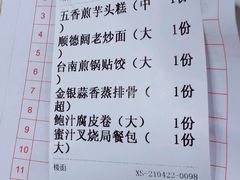 五香煎芋头糕（中） 1份
顺德阔老炒面（大） 1份
台南煎锅贴饺（大） 1份
金银蒜香蒸排骨（超） 1份
鲍汁腐皮卷（大） 1份
蜜汁叉烧局餐包（大） 1份
楼面 XS-210422-0098
10
11